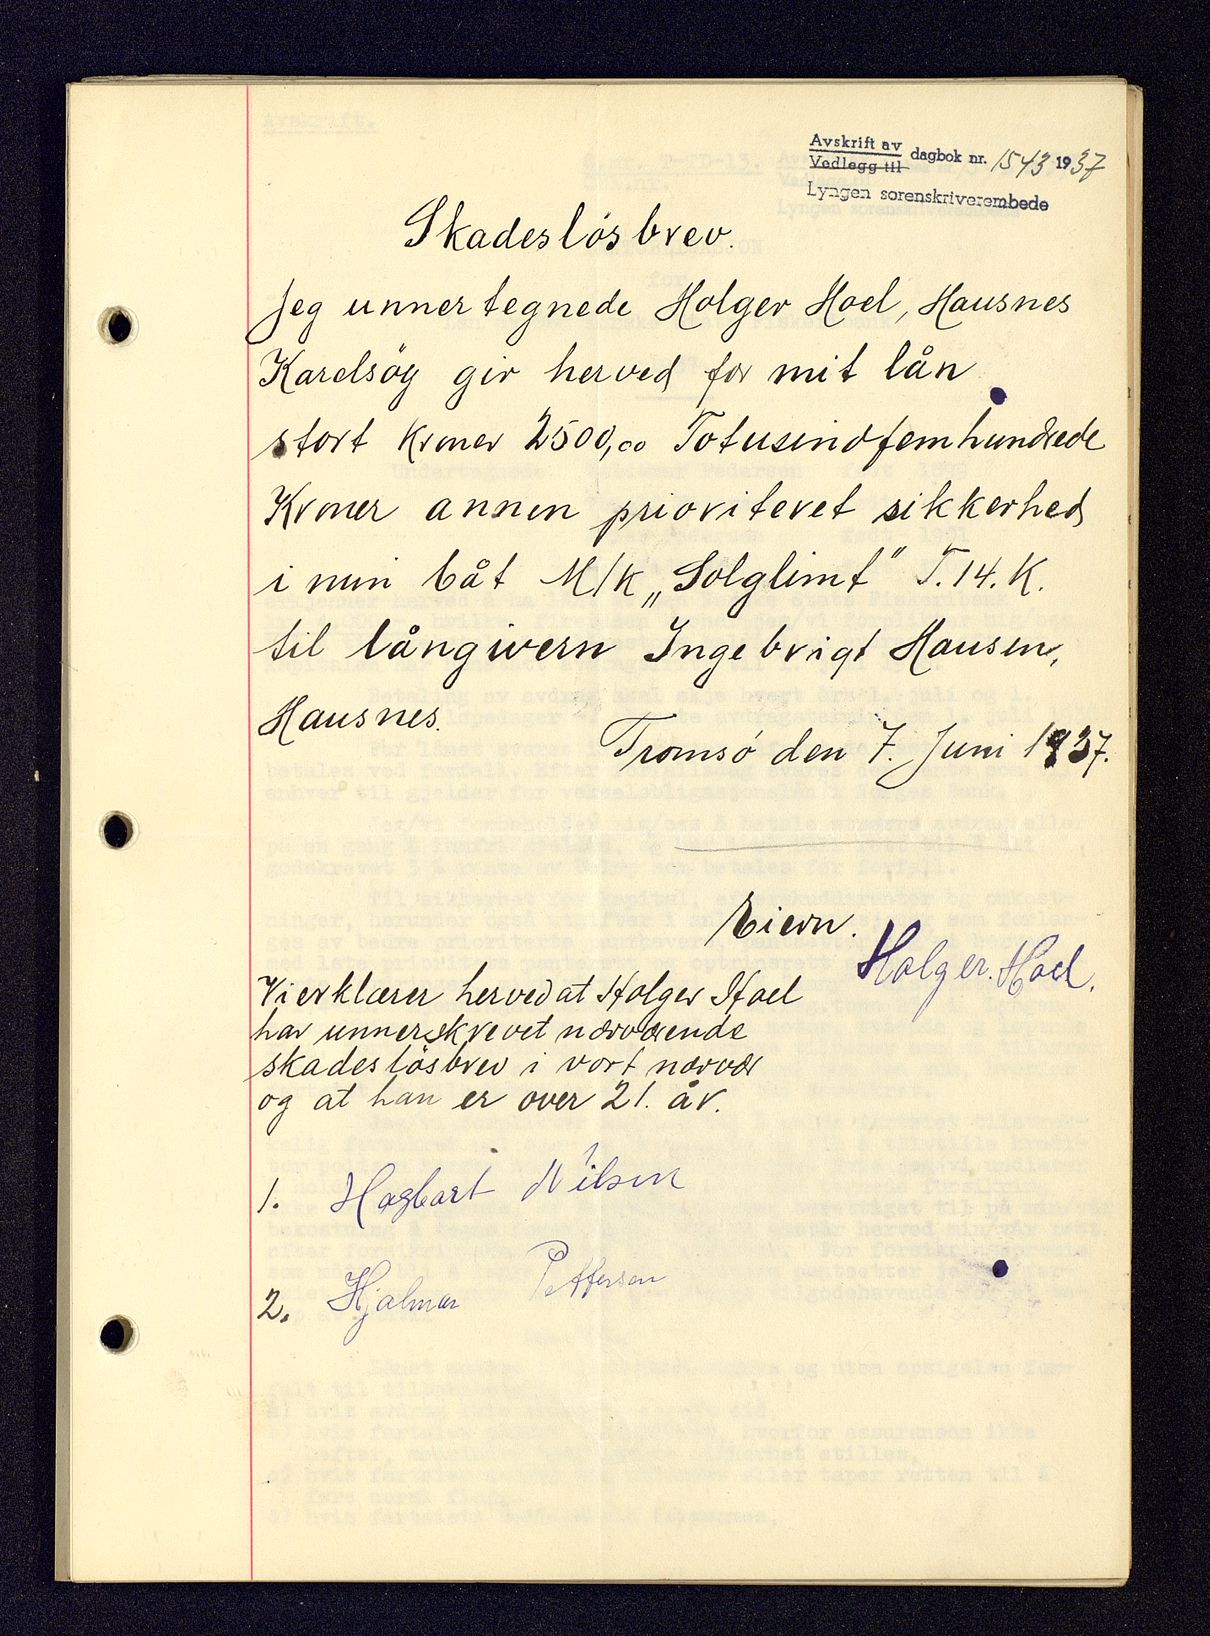 Avskrift av
Vedlegg til dagbok nr. 1543 1937
Lyngen sorenskriverembede
Skadesløsbrev.
Jeg unnertegnede Holger Hoel, Hansnes
Karelsöy gir herved for mit lån
stort Kroner 2500,00 Totusindfemhundrede
Kroner annen priovitevet sikkerhed
i min båt M/k „Solglimt" T.14.K.
til långivern Ingebrigt Hansen,
Hansnes.
Tromsø den 7. Juni 1937.
Eiern.
Holger. Hoel.
Vi erklærer herved at Holger Hoel
har unnerskrevet nærværende
skadesløsbrev i vort nærvær
og at han er over 21. år.
1. Hagbart Nilsen
2. Hjalmar Pettersen